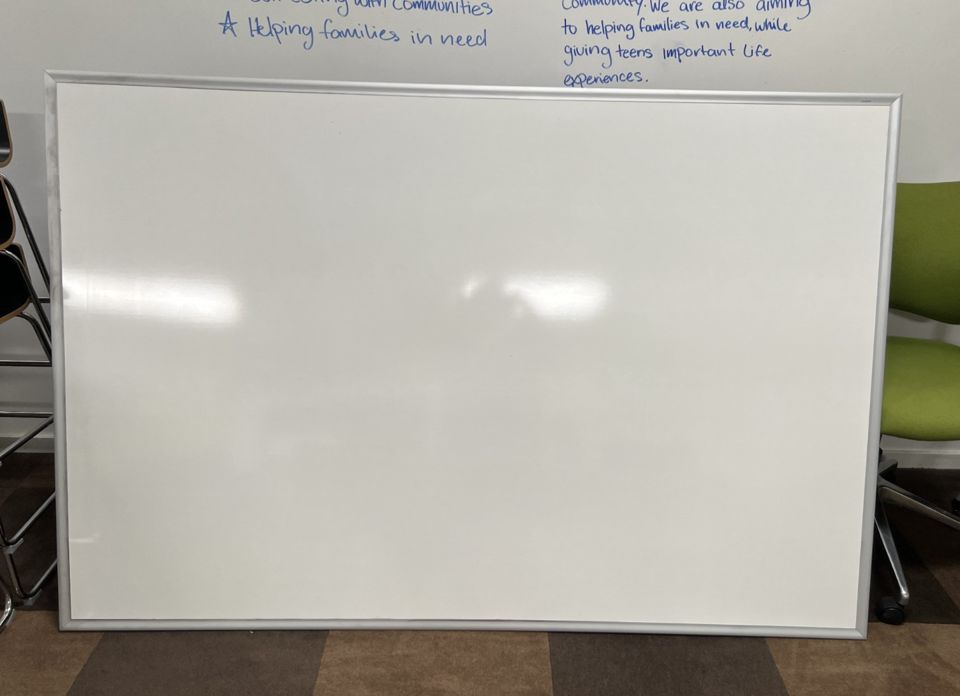 with Communities
☆ Helping families in need
Community. We are also aiming
to helping families in need, while
giving teens important life
experiences.